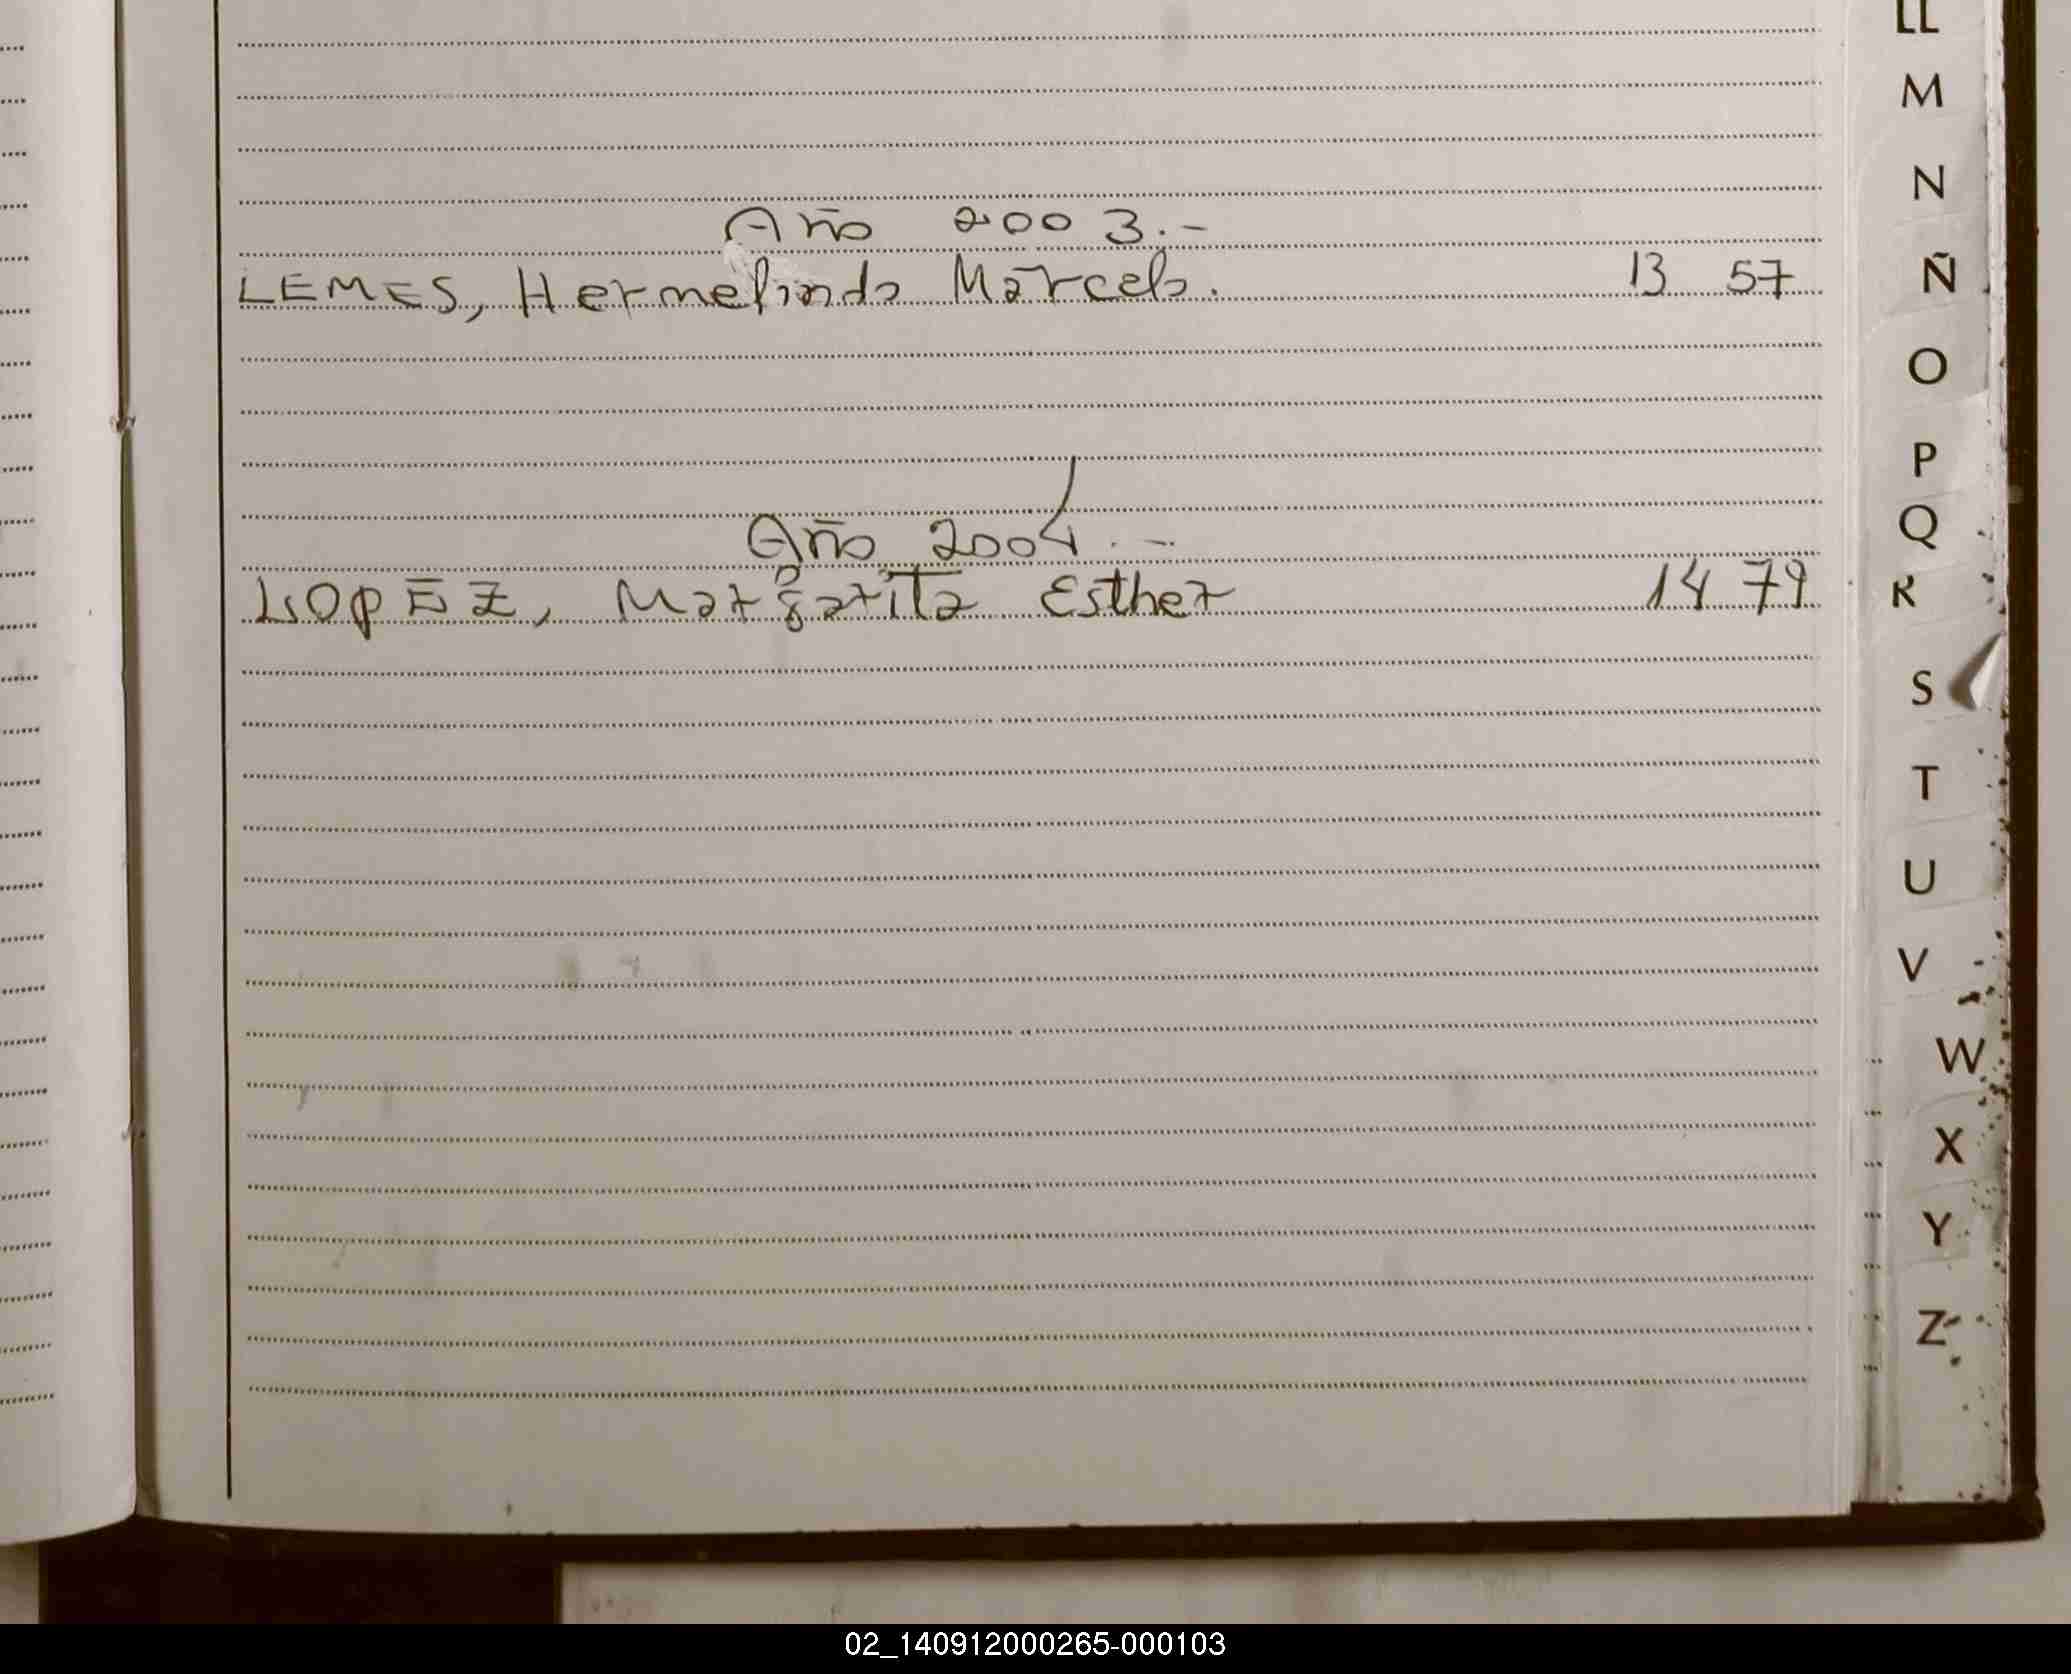 Año 2003.-
LEMES, Hermelindo Marcelo. 13 57
Año 2004.-
LOPEZ, Margarita Esther 14 79
LL
M
N
Ñ
O
P
Q
R
S
T
U
V
W
X
Y
Z
02_140912000265-000103